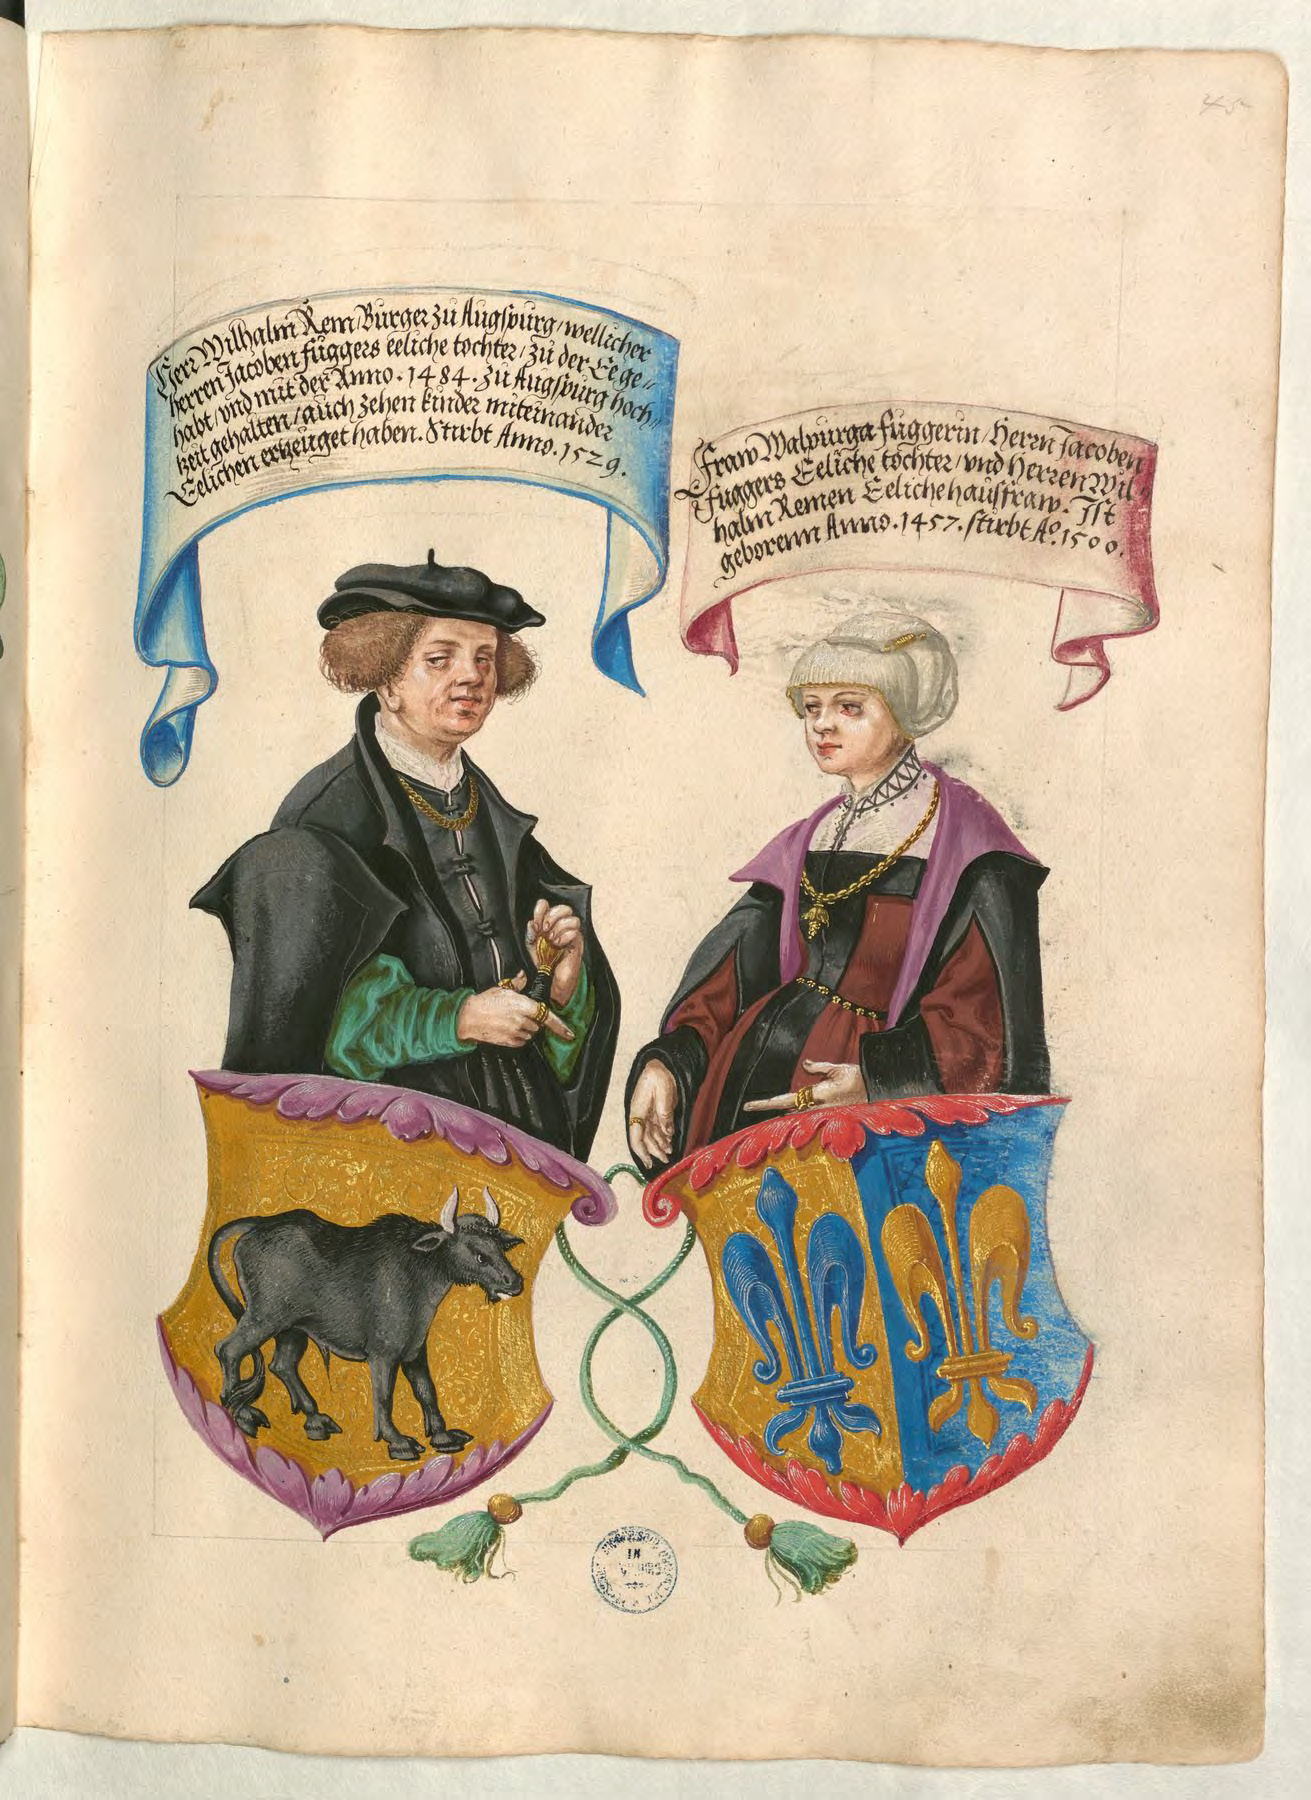 Herr Wilhalm Rem / Burger zu Augspurg / wellicher
herren Jacoben fuggers eeliche tochter / zu der Ee ge=
habt / vnd mit der Anno . 1484 . zu Augspurg hoch=
zeit gehalten / auch zehen kinder miteinander
Eelichen erzeuget haben . Stirbt Anno . 1529 .
Fraw Walpurga fuggerin / Herrn Jacoben
Fuggers Eeliche tochter / vnd herren Wil=
halm Remen Eeliche hausfraw . Ist
geborenn Anno . 1457 . stirbt Aº . 1500 .
45